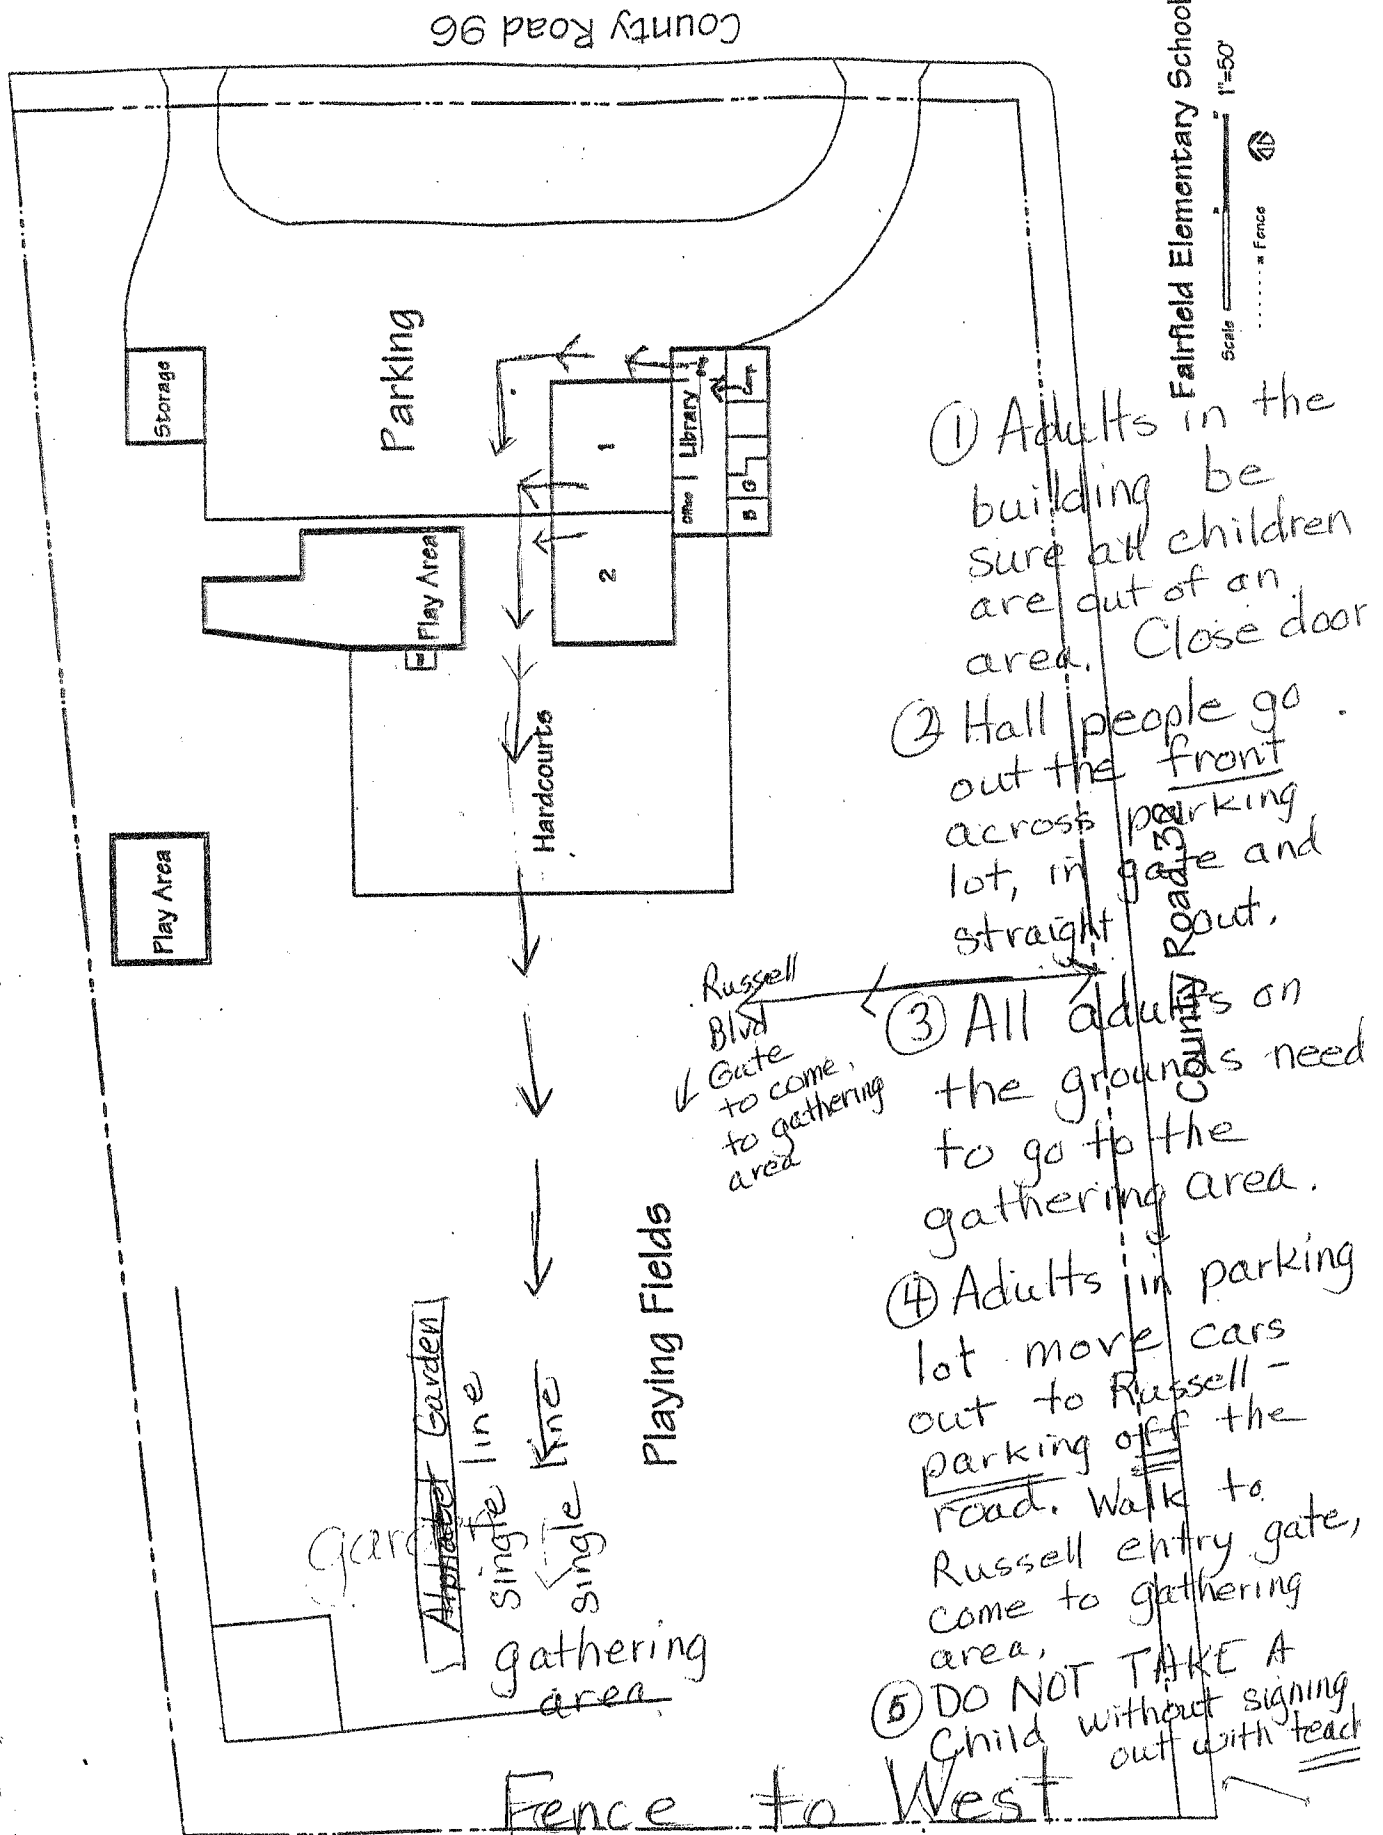 County Road 96
Fairfield Elementary School
Scale
1"=50'
= Fence
Storage
Parking
Library
Office
Comp.
1
2
B
G
Play Area
Hardcourts
Play Area
Russell
Blvd
Gate
to come
to gathering
area
Playing Fields
County Road 32
Garden
single line
single line
gathering
area
Fence to West
① Adults in the
building be
sure all children
are out of an
area. Close door
② Hall people go
out the front
across parking
lot, in gate and
straight out.
③ All adults on
the grounds need
to go to the
gathering area.
④ Adults in parking
lot move cars
out to Russell -
parking off the
road. Walk to
Russell entry gate,
come to gathering
area,
⑤ DO NOT TAKE A
Child without signing
out with teach